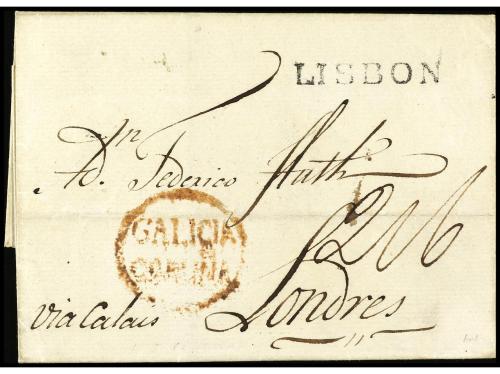 LISBON
Dn
Federico Huth
GALICIA
CORUÑA
2/6
via Calais
Londres